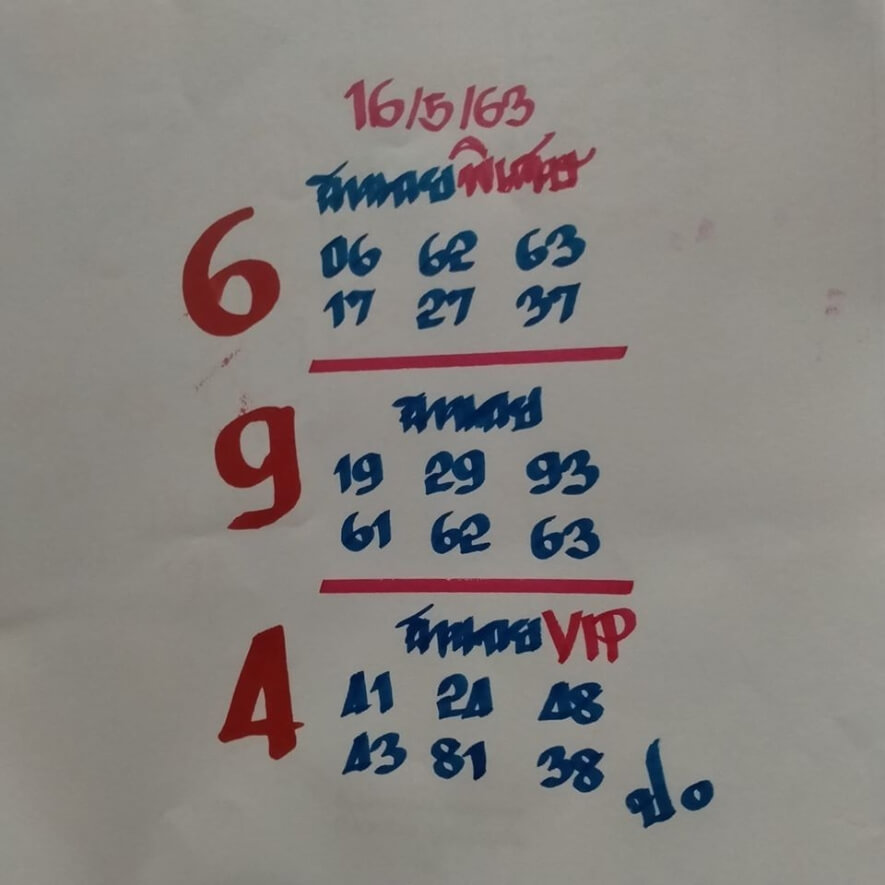 16/5/63
ฮานอยพิเศษ
6
06 62 63
17 27 37
ฮานอย
9
19 29 93
61 62 63
ฮานอย VIP
4
41 24 48
43 81 38